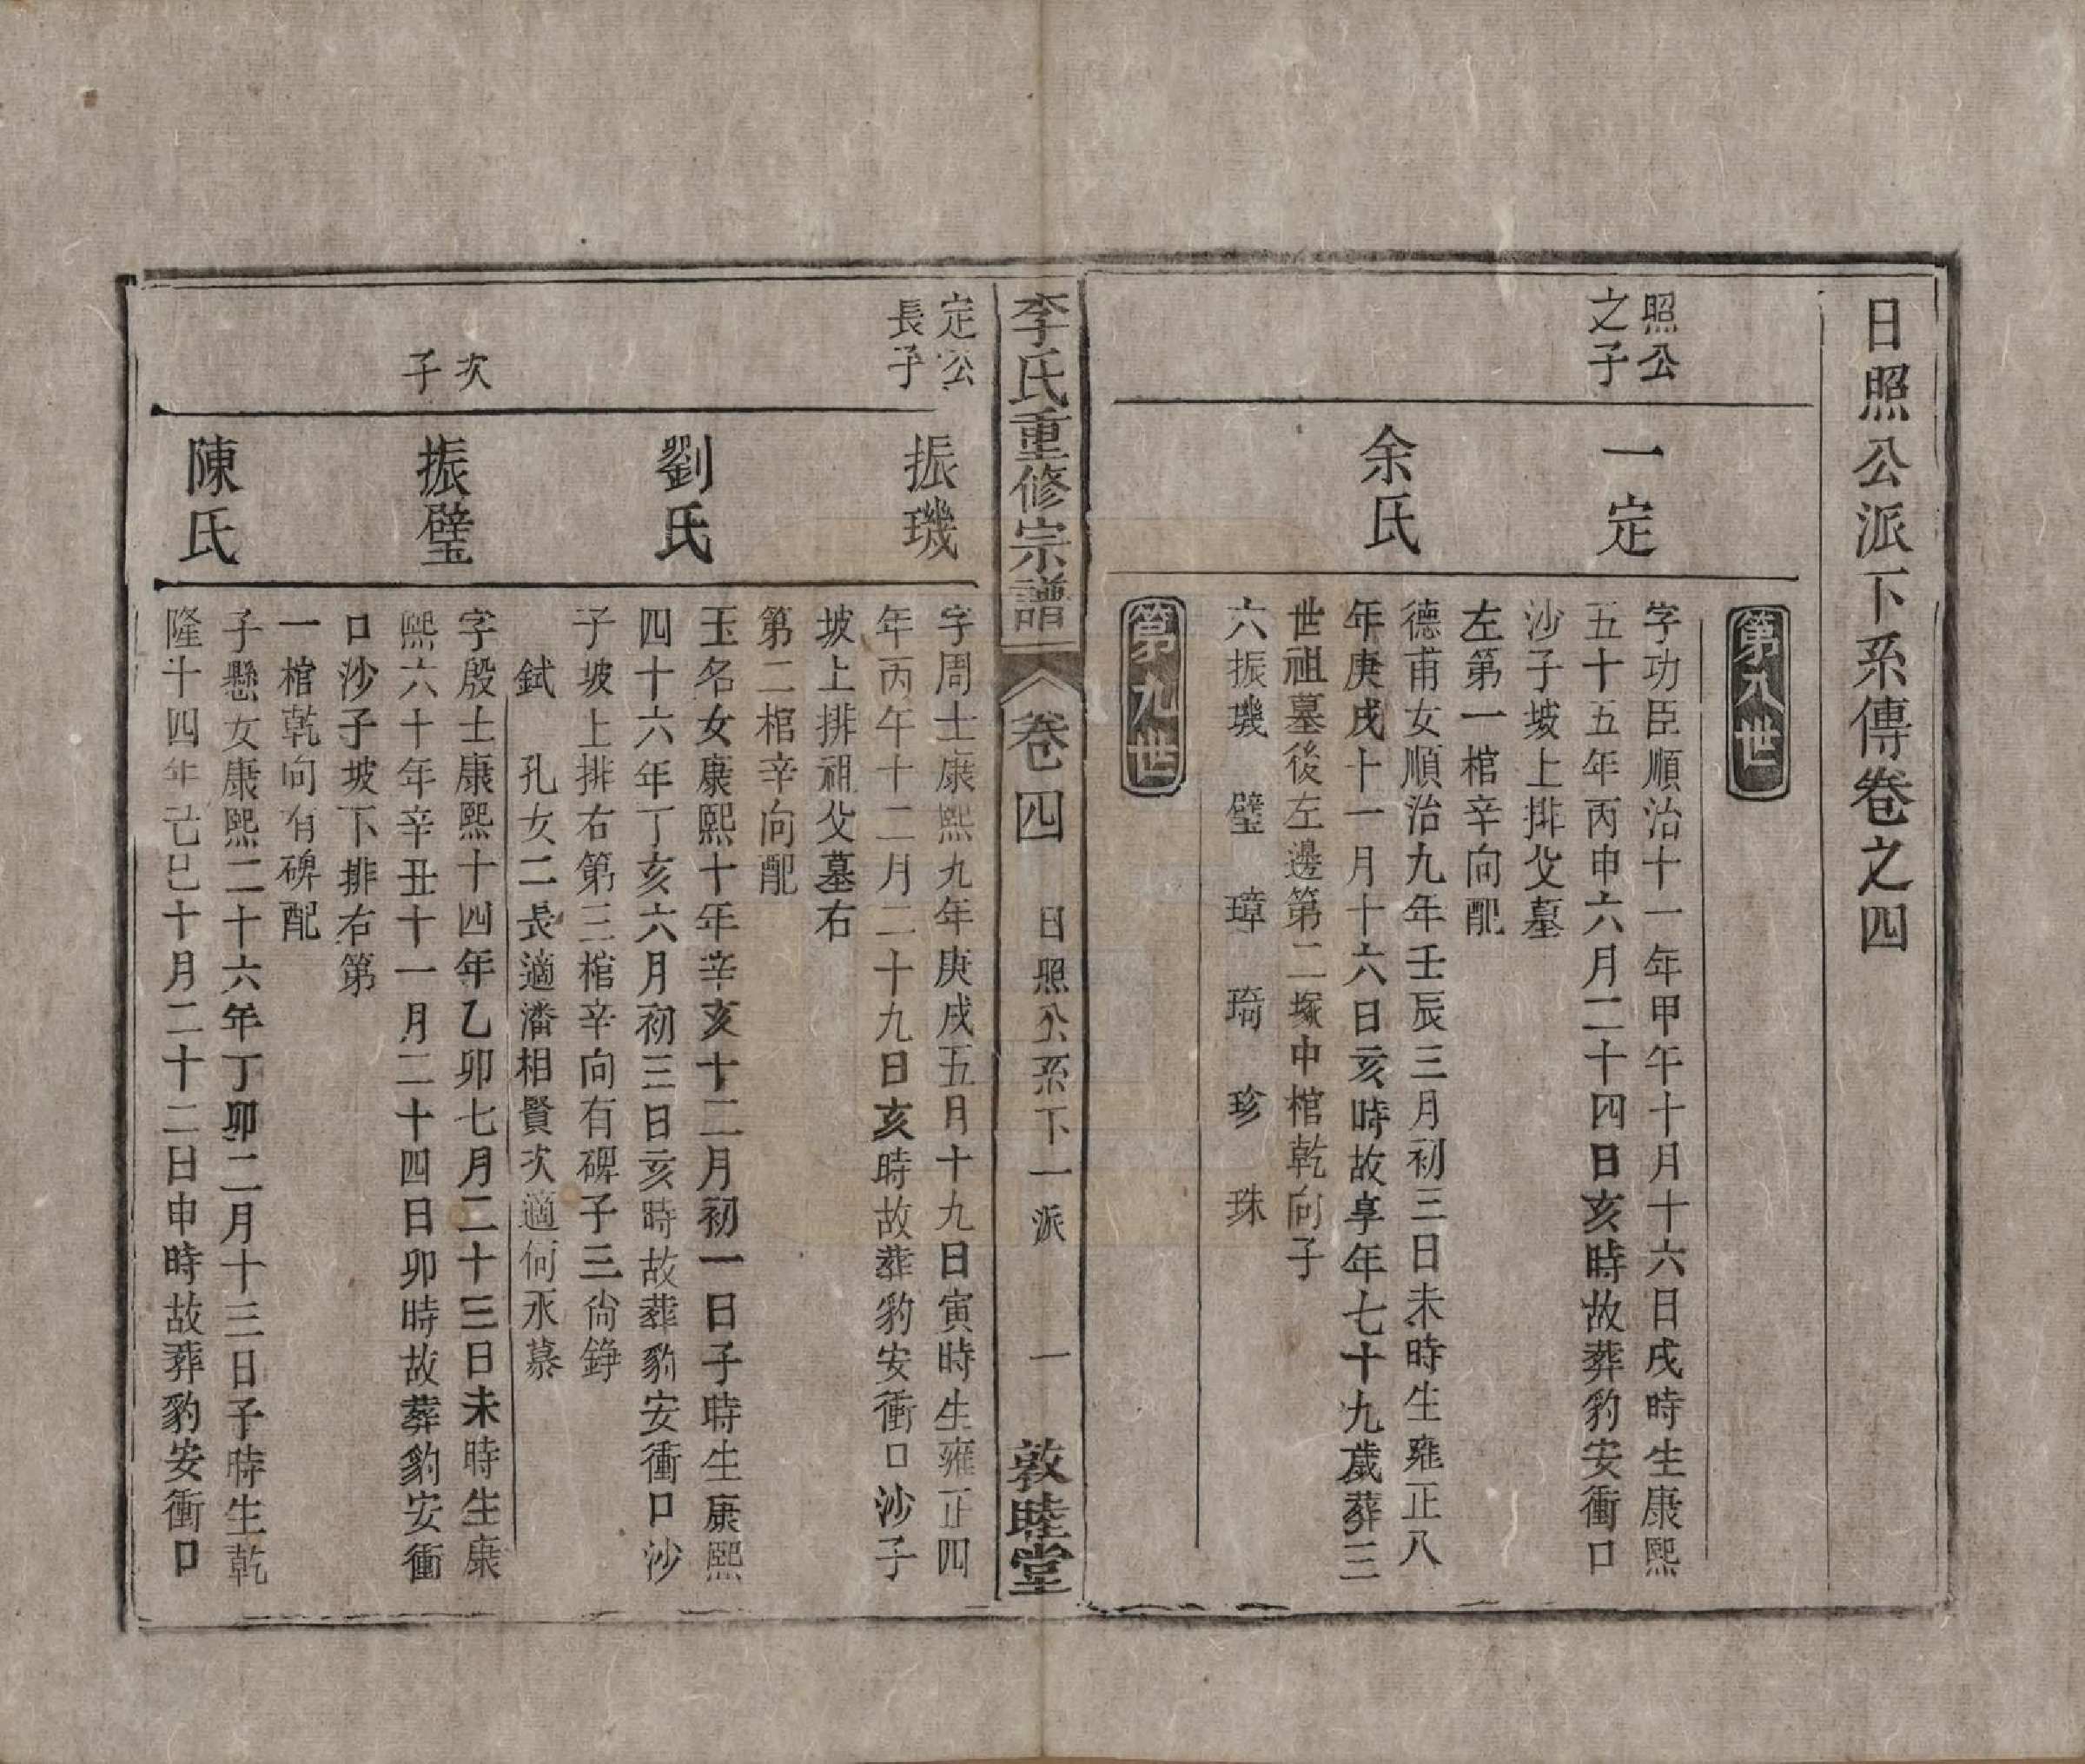 日照公派下系傳卷之四
第八世
照公
之子
一定
字功臣順治十一年甲午十月十六日戌時生康熙
五十五年丙申六月二十四日亥時故葬豹安衝口
沙子坡上排父墓
左第一棺辛向配
余氏
德甫女順治九年壬辰三月初三日未時生雍正八
年庚戌十一月十六日亥時故享年七十九歲葬三
世祖墓後左邊第二塚中棺乾向子
六振璣 璧 璋 琦 珍 珠
第九世
李氏重修宗譜 卷四 日照公系下一派 一 敦睦堂
定公
長子
振璣
字周士康熙九年庚戌五月十九日寅時生雍正四
年丙午十二月二十九日亥時故葬豹安衝口沙子
坡上排祖父墓右
第二棺辛向配
劉氏
玉名女康熙十年辛亥十二月初一日子時生康熙
四十六年丁亥六月初三日亥時故葬豹安衝口沙
子坡上排右第三棺辛向有碑子三尙錚
鉽 孔女二長適潘相賢次適何永慕
次
子
振璧
字殷士康熙十四年乙卯七月二十三日未時生康
熙六十年辛丑十一月二十四日卯時故葬豹安衝
口沙子坡下排右第
一棺乾向有碑配
陳氏
子懸女康熙二十六年丁卯二月十三日子時生乾
隆十四年己巳十月二十二日申時故葬豹安衝口